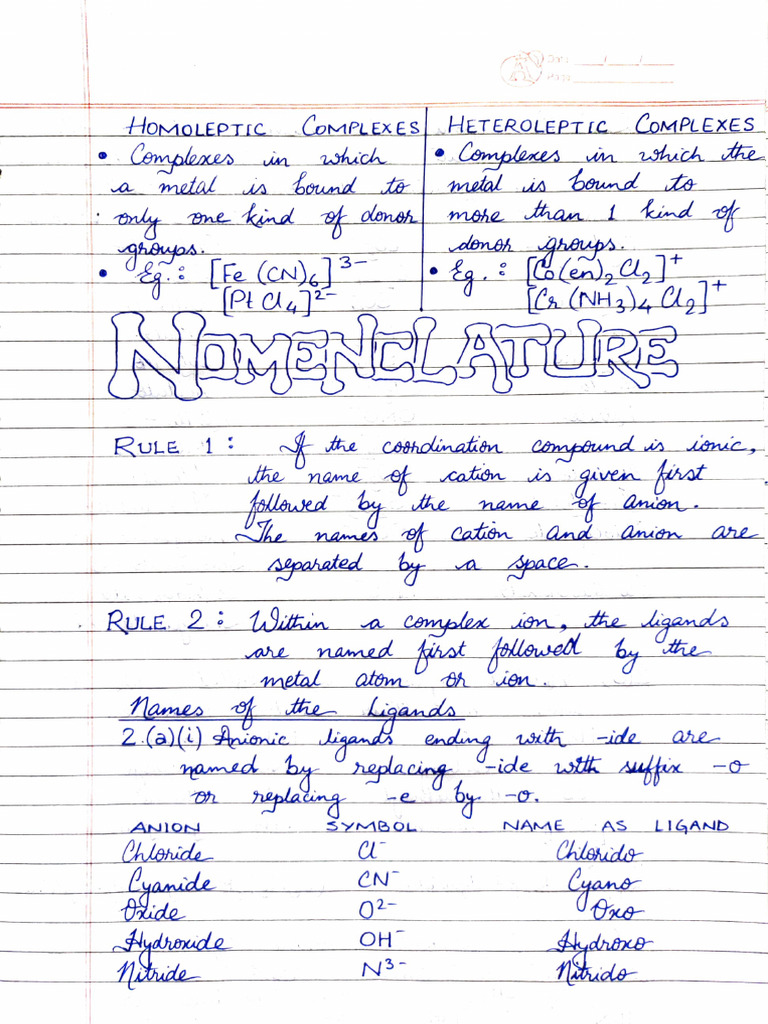 HOMOLEPTIC COMPLEXES
• Complexes in which
a metal is bound to
only one kind of donor
groups.
• Eg.: [Fe(CN)₆]³⁻
[PtCl₄]²⁻
HETEROLEPTIC COMPLEXES
• Complexes in which the
metal is bound to
more than 1 kind of
donor groups.
• Eg.: [Co(en)₂Cl₂]⁺
[Cr(NH₃)₄Cl₂]⁺
NOMENCLATURE
RULE 1: If the coordination compound is ionic,
the name of cation is given first
followed by the name of anion.
The names of cation and anion are
separated by a space.
RULE 2: Within a complex ion, the ligands
are named first followed by the
metal atom or ion.
Names of the Ligands
2.(a)(i) Anionic ligands ending with -ide are
named by replacing -ide with suffix -o
or replacing -e by -o.
ANION SYMBOL NAME AS LIGAND
Chloride Cl⁻ Chlorido
Cyanide CN⁻ Cyano
Oxide O²⁻ Oxo
Hydroxide OH⁻ Hydroxo
Nitride N³⁻ Nitrido